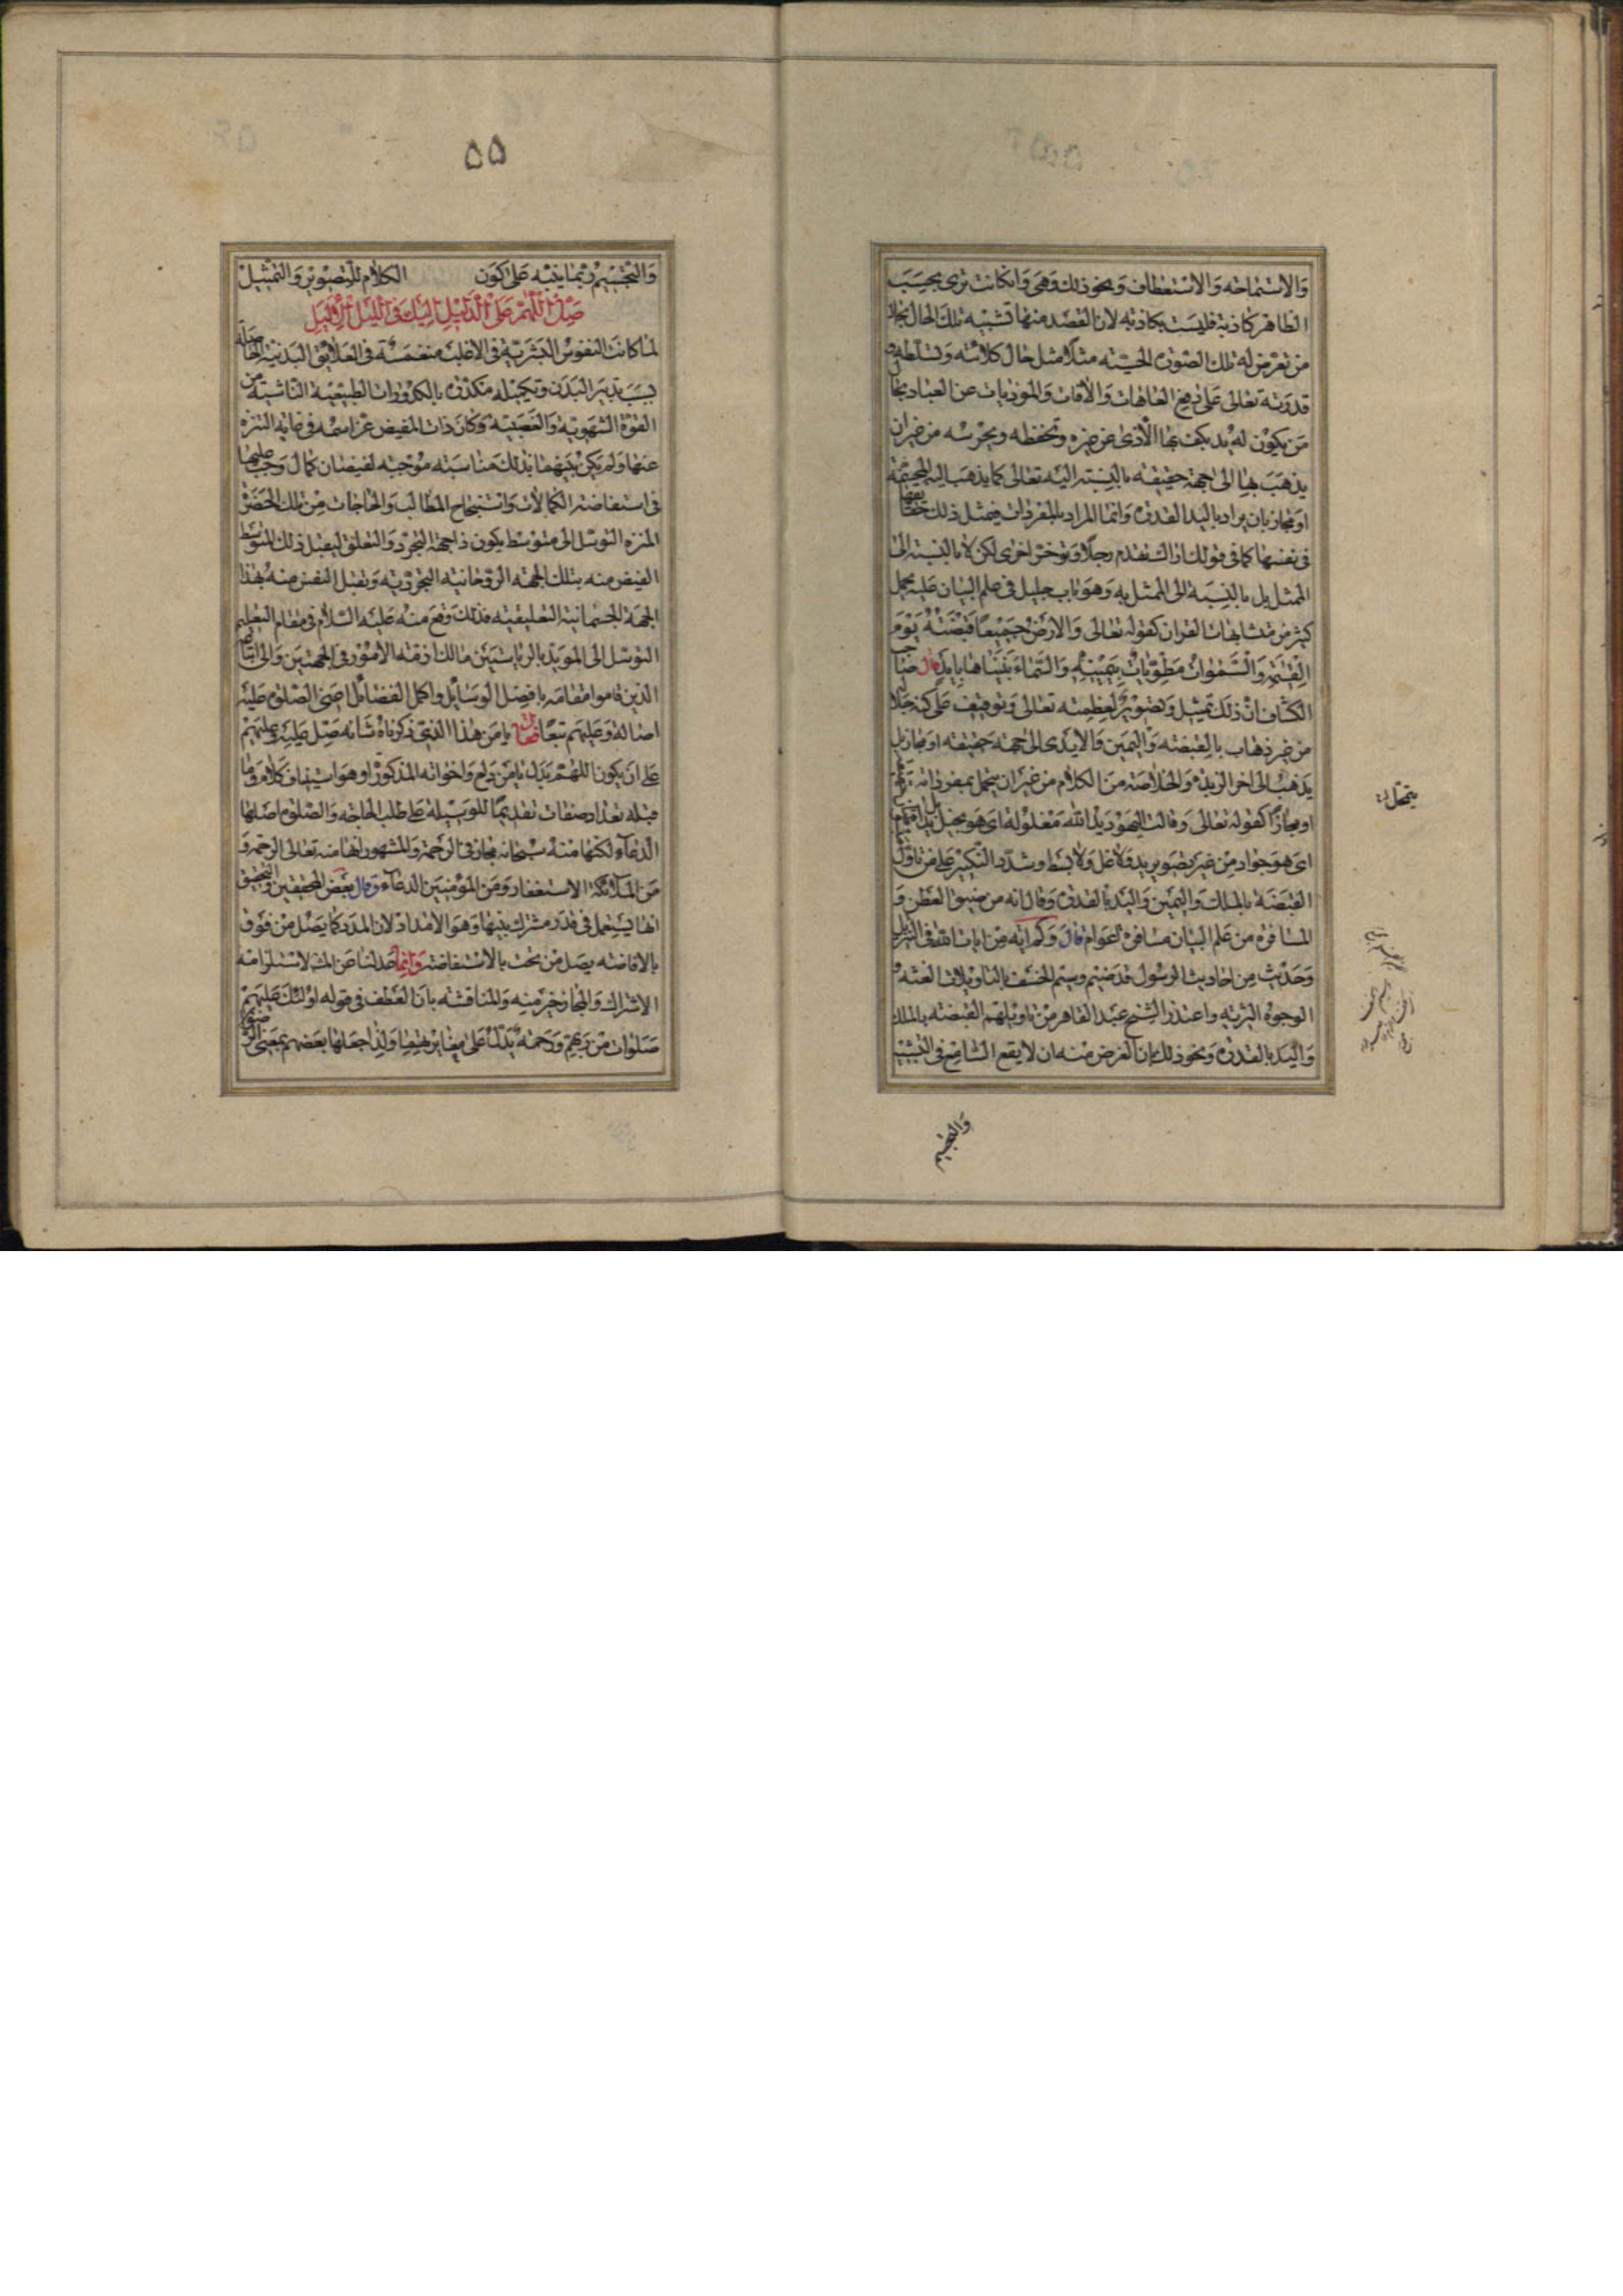 والاستماحته والاستعطاف ونحو ذلك وهى وان كانت ترى بحسب
الظاهر كاذبة فليست بكاذبه لان القصد منها تشبيه تلك الحال بحال
من تعرض له تلك الصورة الحسيته مثلا مثل حال كلائته وتسلطه و
قدرته تعالى على دفع العاهات والآفات والموذيات عن العباد بحال
من يكون له يد يكف بها الأذى عن غيره وتحفظه ويحرسه من غيران
يذهب بها الى جهة حقيقه بالنسبة اليه تعالى كما يذهب اليه
او مجاز بان يراد باليد القدرة وانما المراد بالمفردات فى مثل ذلك حقا يقها
فى نفسها كما فى قولك اراك تقدم رجلا وتوخر اخرى لكن لا بالنسبة الى
الممثل بل بالنسبة الى الممثل به وهو باب جليل فى علم البيان عليه يحمل
كثير من متشابهات القران كقوله تعالى والارض جميعا قبضته يوم
القيمة والسموات مطويات بيمينه والسماء بنيناها بايد قال صاحب
الكشاف ان ذلك تمثيل وتصوير لعظمته تعالى وتوقيف على كنه جلاله
من غير ذهاب بالقبضته واليمين والايدى الى جهة حقيقه او مجاز بل
يذهب الى اخر الزبدة والخلاصة من الكلام من غيران يتمحل بمفرداته حقيقة
او مجازا كقوله تعالى وقالت اليهود يد الله مغلولة اى هو بخيل بل يداه مبسوطتان
اى هو جواد من غير تصوير يد ولا غل ولا بسط وشدد النكير على من تاول
القبضة بالملك واليمين واليد بالقدرة وقال انه من ضيق العطن و
المسافرة من علم البيان مسافرة اعوام قال وكم آية من ايات الله فى التنزيل
وحديث من احاديث الرسول قد ضيم وسيم الخسف بالتاويلات الغثه و
الوجوه الرثه واعتذر الشيخ عبد القاهر من تاويلهم القبضته بالملك
واليد بالقدرة ونحو ذلك بان الغرض منه ان لا يقع السامع فى التشبيه
يتمحل
والتجسيم
۵۵
والتجسيم ربما ينبه على كون الكلام للتصوير والتمثيل
صل اللهم على الدليل اليك فى الليل الاليل
لما كانت النفوس البشرية فى الاغلب منغمسة فى العلايق البدنية الحاصلة
بسبب تدبير البدن وتكميله متكدرة بالكدورات الطبيعية الناشية من
القوة الشهوية والغضبية وكان ذات المفيض عز اسمه فى غاية التنزه
عنها ولم يكن بينهما بذلك مناسبته موجبه لفيضان كمال وجب عليها
فى استفاضة الكمالات واستنجاح المطالب والحاجات من تلك الحضرة
المنزه التوسل الى متوسط يكون ذا جهة التجرد والتعلق ليقبل ذلك المتوسط
الفيض منه بتلك الجهة الروحانية التجردية وتقبل النفس منه بهذا
الجهة الجسمانية التعليقيته فذلك وقع منه عليه السلام فى مقام التعليم
التوسل الى المويد بالرياستين مالك ازمة الامور فى الجهتين والى اتباعه
الذين قاموا مقامه بافضل الوسايل واكمل الفضائل اعنى الصلوة عليه
اصالة وعليهم تبعا فقال يا من هذا الذى ذكرناه شانه صل عليه وعليهم
على ان يكون اللهم بدل يا من دلع واخواته المذكور او هو استيناف كلام وما
قبله تعداد صفات تقديما للوسيلة على طلب الحاجه والصلوة اصلها
الدعاء لكنها منه سبحانه مجاز فى الرحمة والمشهور انها منه تعالى الرحمة و
من الملائكة الاستغفار ومن المؤمنين الدعاء وقال بعض المحققين والتحقيق
انها يستعمل فى قدر مشترك بينها وهو الامداد لان المدد كما يصل من فوق
بالافاضته يصل من تحت بالاستفاضة وانما عدلنا عن المش لاستلزامه
الاشتراك والمجاز خير منه والمناقشه بان العطف فى قوله اولئك عليهم
صلوات من ربهم ورحمة يدل على مغايرتهما ولذا جعلها بعضهم بمعنى الرضوان